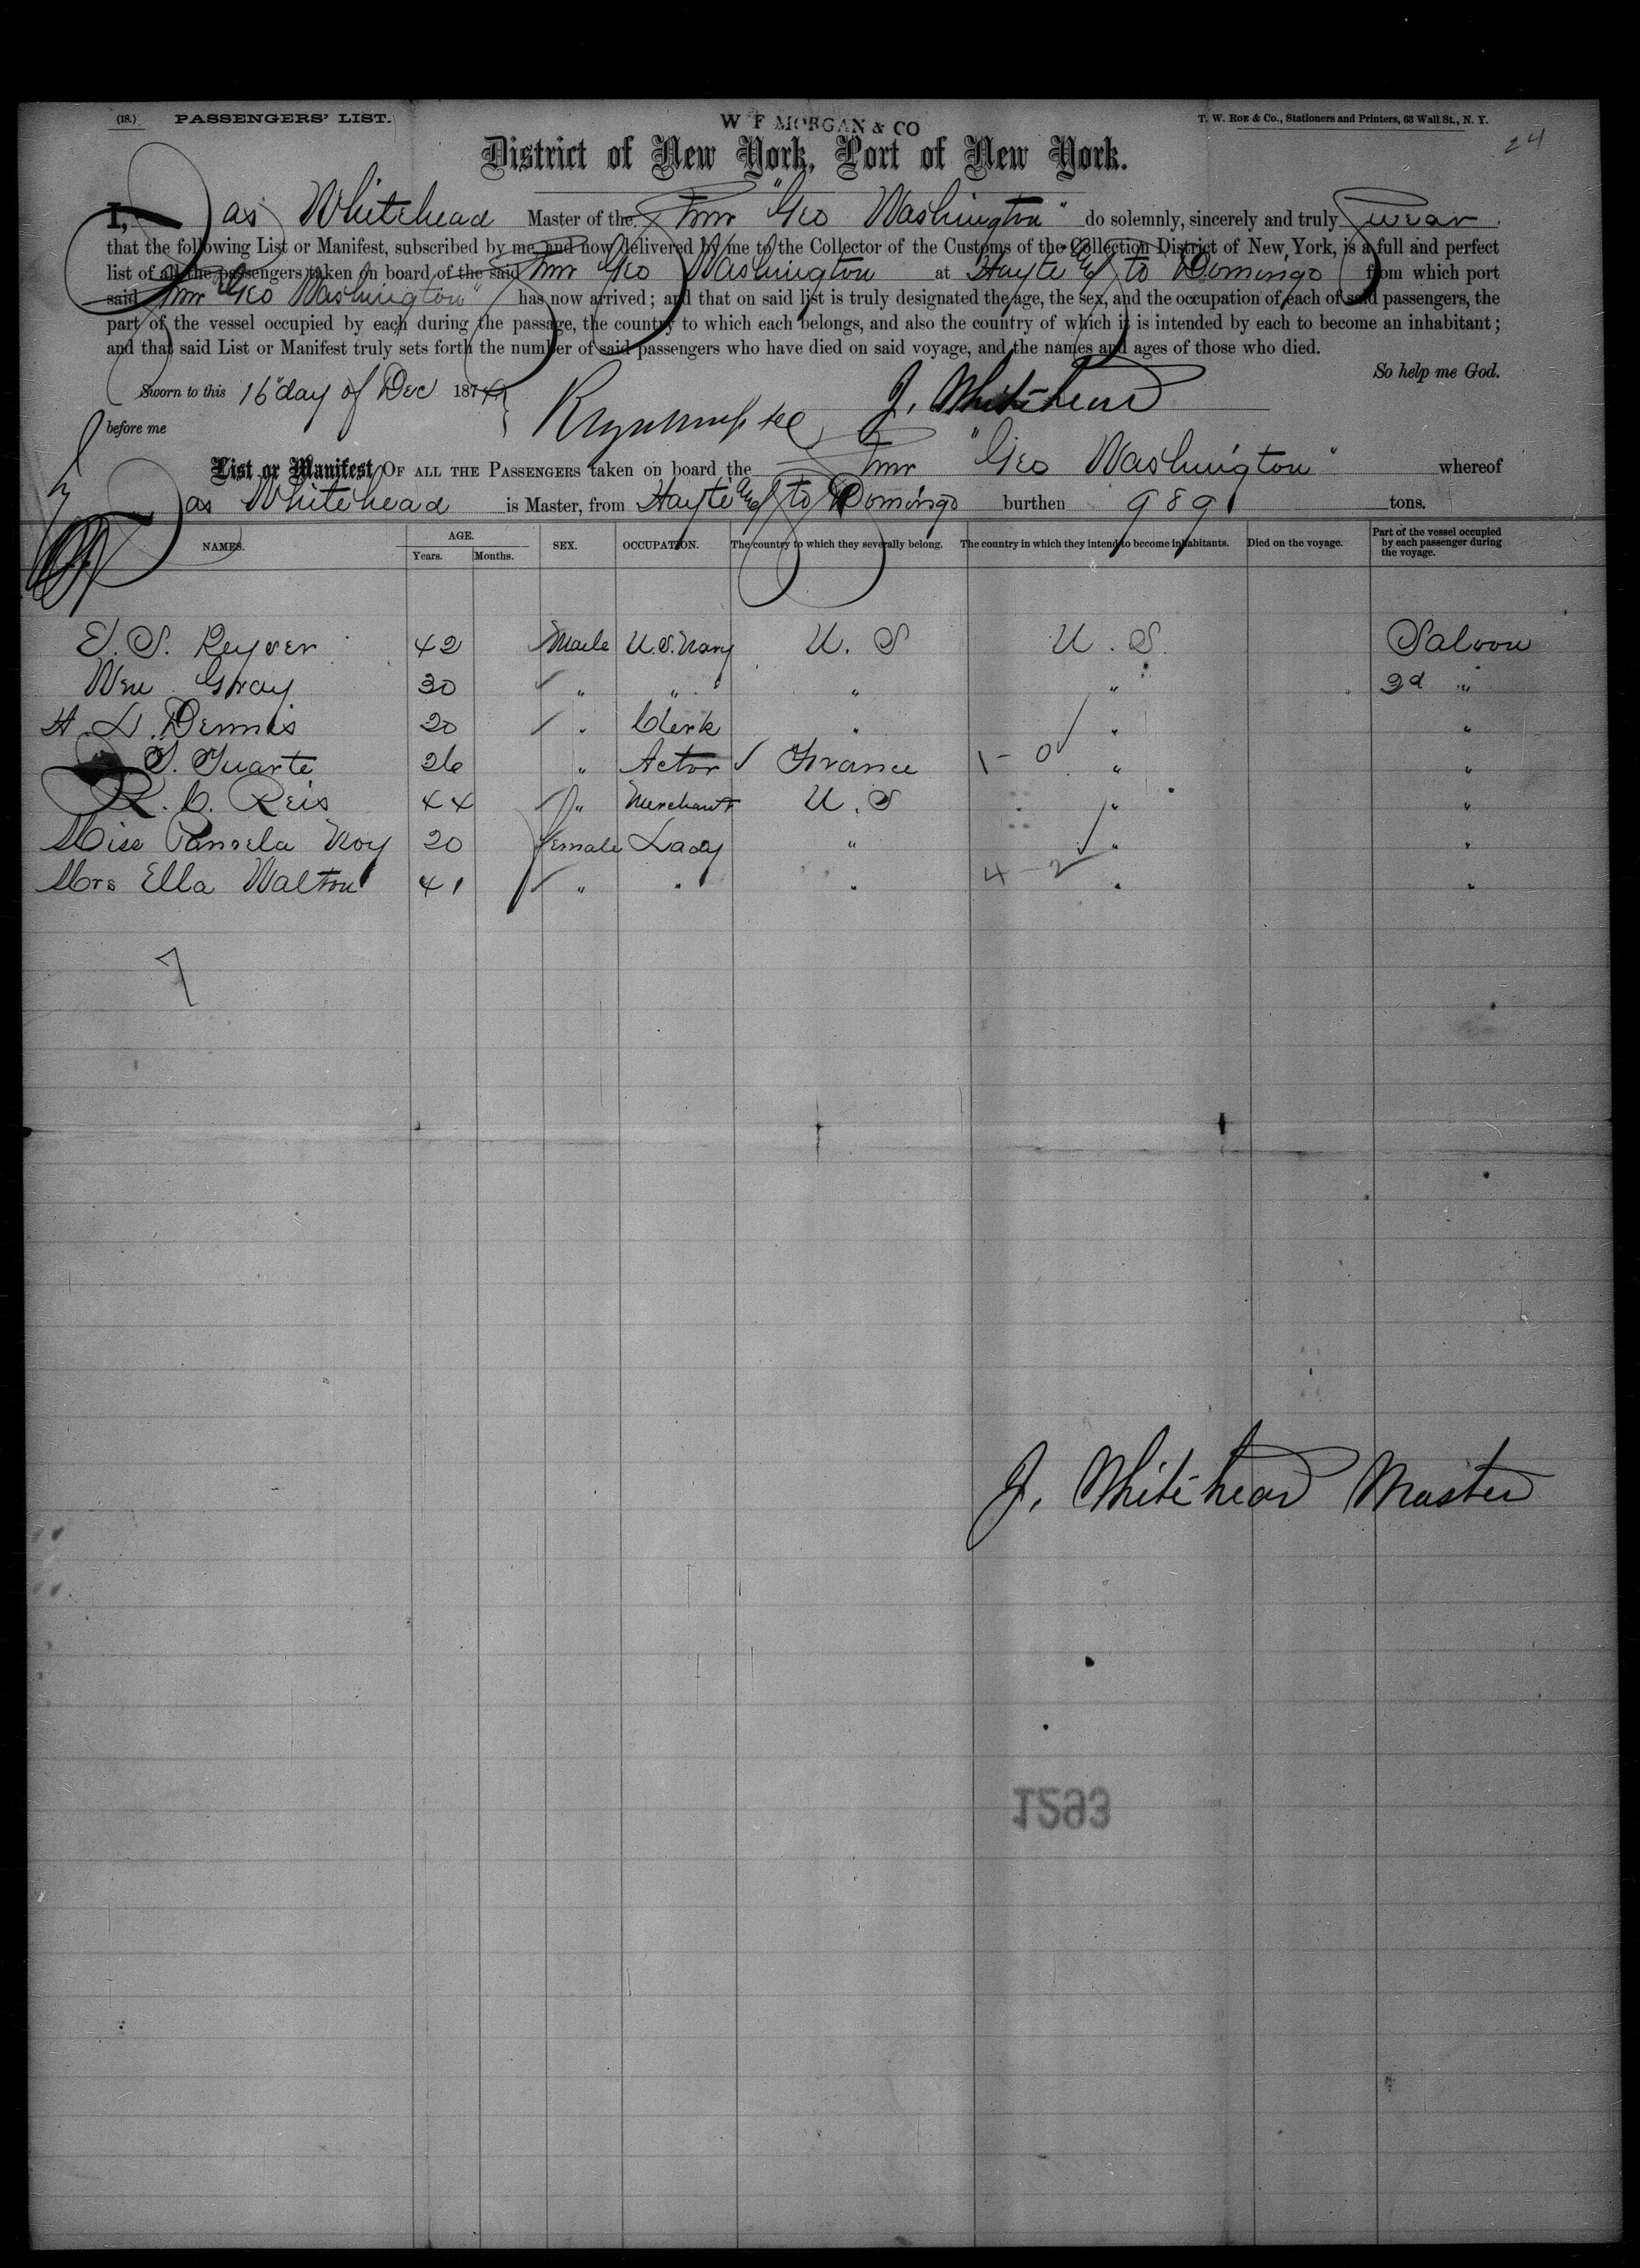 (18.) PASSENGERS' LIST. W F MORGAN & CO T. W. ROE & Co., Stationers and Printers, 63 Wall St., N. Y.
24
District of New York, Port of New York.
I, Jas Whitehead Master of the Stmr "Geo Washington" do solemnly, sincerely and truly swear
that the following List or Manifest, subscribed by me and now delivered by me to the Collector of the Customs of the Collection District of New York, is a full and perfect
list of all the passengers taken on board of the said Stmr Geo Washington at Hayte & St Domingo from which port
said Stmr "Geo Washington" has now arrived; and that on said list is truly designated the age, the sex, and the occupation of each of said passengers, the
part of the vessel occupied by each during the passage, the country to which each belongs, and also the country of which it is intended by each to become an inhabitant;
and that said List or Manifest truly sets forth the number of said passengers who have died on said voyage, and the names and ages of those who died.
So help me God.
Sworn to this 16" day of Dec 1874 J. Whitehead
before me
List or Manifest OF ALL THE PASSENGERS taken on board the Stmr "Geo Washington" whereof
Jas Whitehead is Master, from Hayte & St Domingo burthen 989 tons.
NAMES. AGE. Years. Months. SEX. OCCUPATION. The country to which they severally belong. The country in which they intend to become inhabitants. Died on the voyage. Part of the vessel occupied by each passenger during the voyage.
E. S. Keyser 42 Male U.S. Navy U. S U. S. Saloon
Wm Gray 30 " " " " 2d "
H. L. Dennis 20 " Clerk " " "
26 " Actor France 1 - 0 " "
R. C. Reis 44 " Merchant U. S " "
Miss Roy 20 female Lady " " "
Mrs Ella Walton 41 " " " 4 - 2 " "
7
J. Whitehead Master
1593